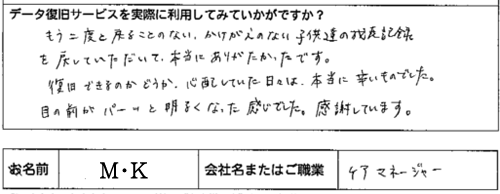 データ復旧サービスを実際に利用してみていかがですか？
もう二度と戻ることのない、かけがえのない子供達の成長記録
を戻していただいて、本当にありがたかったです。
復旧できるのかどうか、心配していた日々は、本当に辛いものでした。
目の前がパーッと明るくなった感じでした。感謝しています。
お名前 M・K 会社名またはご職業 ケアマネージャー